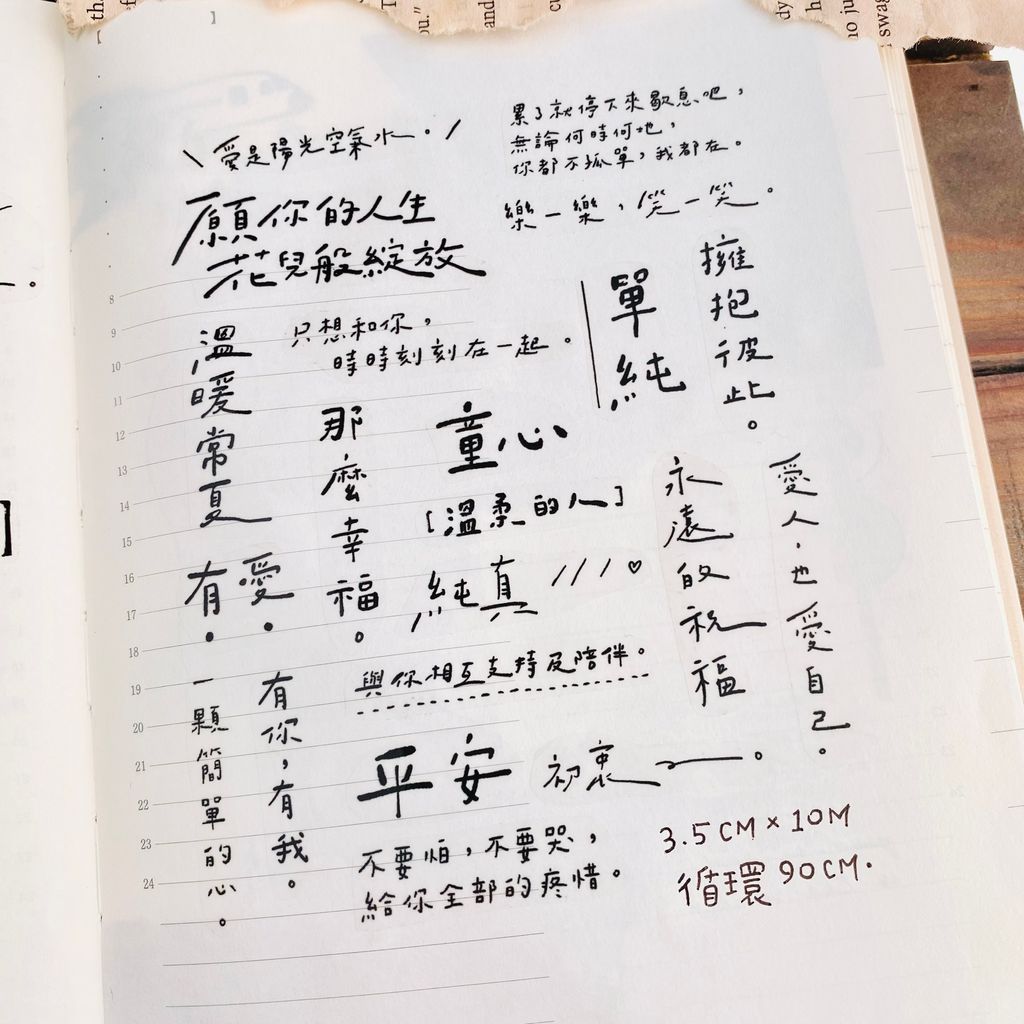 愛是陽光空氣水。
願你的人生
花兒般綻放
累了就停下來歇息吧，
無論何時何地，
你都不孤單，我都在。
樂一樂，笑一笑。
單純
擁抱彼此。
只想和你，
時時刻刻在一起。
溫暖常夏
那麼幸福。
童心
[溫柔的人]
純真 ///♡
永遠的祝福
愛人·也愛自己。
愛·
有·
與你相互支持及陪伴。
有你，有我。
一顆簡單的心。
平安
初衷
不要怕，不要哭，
給你全部的疼惜。
3.5CM×10M
循環90CM.
8
9
10
11
12
13
14
15
16
17
18
19
20
21
22
23
24